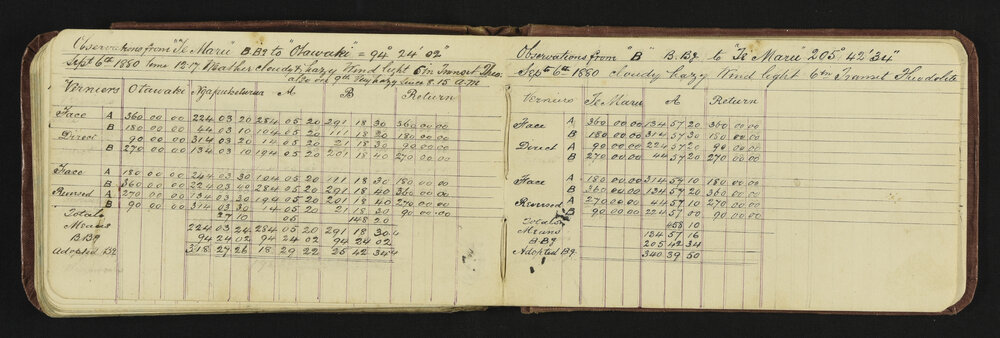 Observations from "Te Maru" B.Bg to "Otawaki" = 94° 24' 02"
Sept 6th 1880 time 12.17 Weather cloudy & hazy Wind light 6in Transit Theo.
also on 9th Very hazy since 8.15 a.m
Verniers Otawaki Ngapuketurua A B Return
Face A 360 00 00 224 03 20 284 05 20 291 18 30 360 00 00
B 180 00 00 44 03 10 104 05 20 111 18 20 180 00 00
Direct A 90 00 00 314 03 20 14 05 20 21 18 30 90 00 00
B 270 00 00 134 03 10 194 05 20 201 18 40 270 00 00
Face A 180 00 00 244 03 30 104 05 20 111 18 30 180 00 00
B 360 00 00 224 03 40 284 05 20 291 18 40 360 00 00
Reversed A 270 00 00 134 03 30 194 05 20 201 18 40 270 00 00
B 90 00 00 314 03 30 14 05 20 21 18 30 90 00 00
Totals 27 10 05 148 20
Means 224 03 24 284 05 20 291 18 30
B.Bg 94 24 02 94 24 02 94 24 02
Adopted Bg 318 27 26 18 29 22 25 42 34
Observations from "B" B.Bg to "Te Maru" 205° 42' 34"
Sept 6th 1880 cloudy hazy Wind light 6in Transit Theodolite
Verniers Te Maru A Return
Face A 360 00 00 134 57 20 360 00 00
B 180 00 00 314 57 30 180 00 00
Direct A 90 00 00 224 57 20 90 00 00
B 270 00 00 44 57 20 270 00 00
Face A 180 00 00 314 57 10 180 00 00
B 360 00 00 134 57 20 360 00 00
Reversed A 270 00 00 44 57 10 270 00 00
B 90 00 00 224 57 00 90 00 00
Totals 458 10
Means 134 57 16
B.Bg 205 42 34
Adopted Bg. 340 39 50